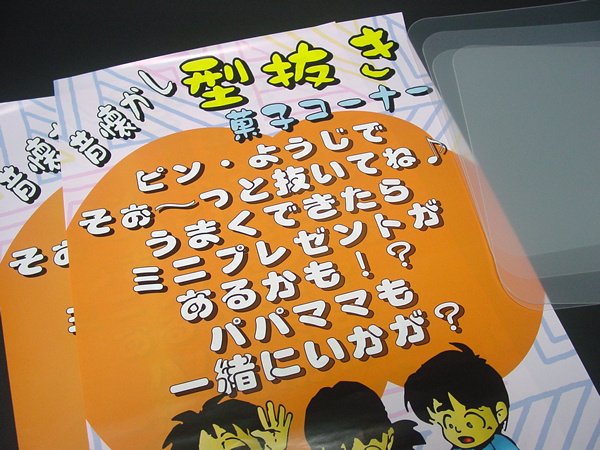 昔懐かし
型抜き
菓子コーナー
ピン・ようじで
そお〜っと抜いてね♪
うまくできたら
ミニプレゼントが
あるかも!?
パパママも
一緒にいかが?
昔懐
そお
ミ